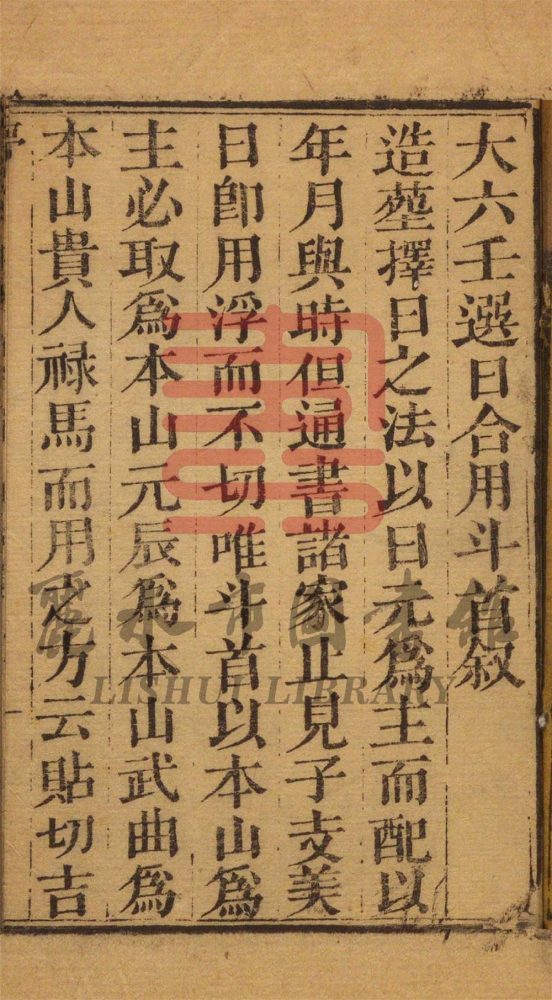 大六壬選日合用斗首叙
造塟擇日之法以日元為主而配以
年月與時但通書諸家止見子支美
日卽用浮而不切唯斗首以本山為
主必取為本山元辰為本山武曲為
本山貴人祿馬而用之方云貼切吉
麗水市圖書館
LISHUI LIBRARY